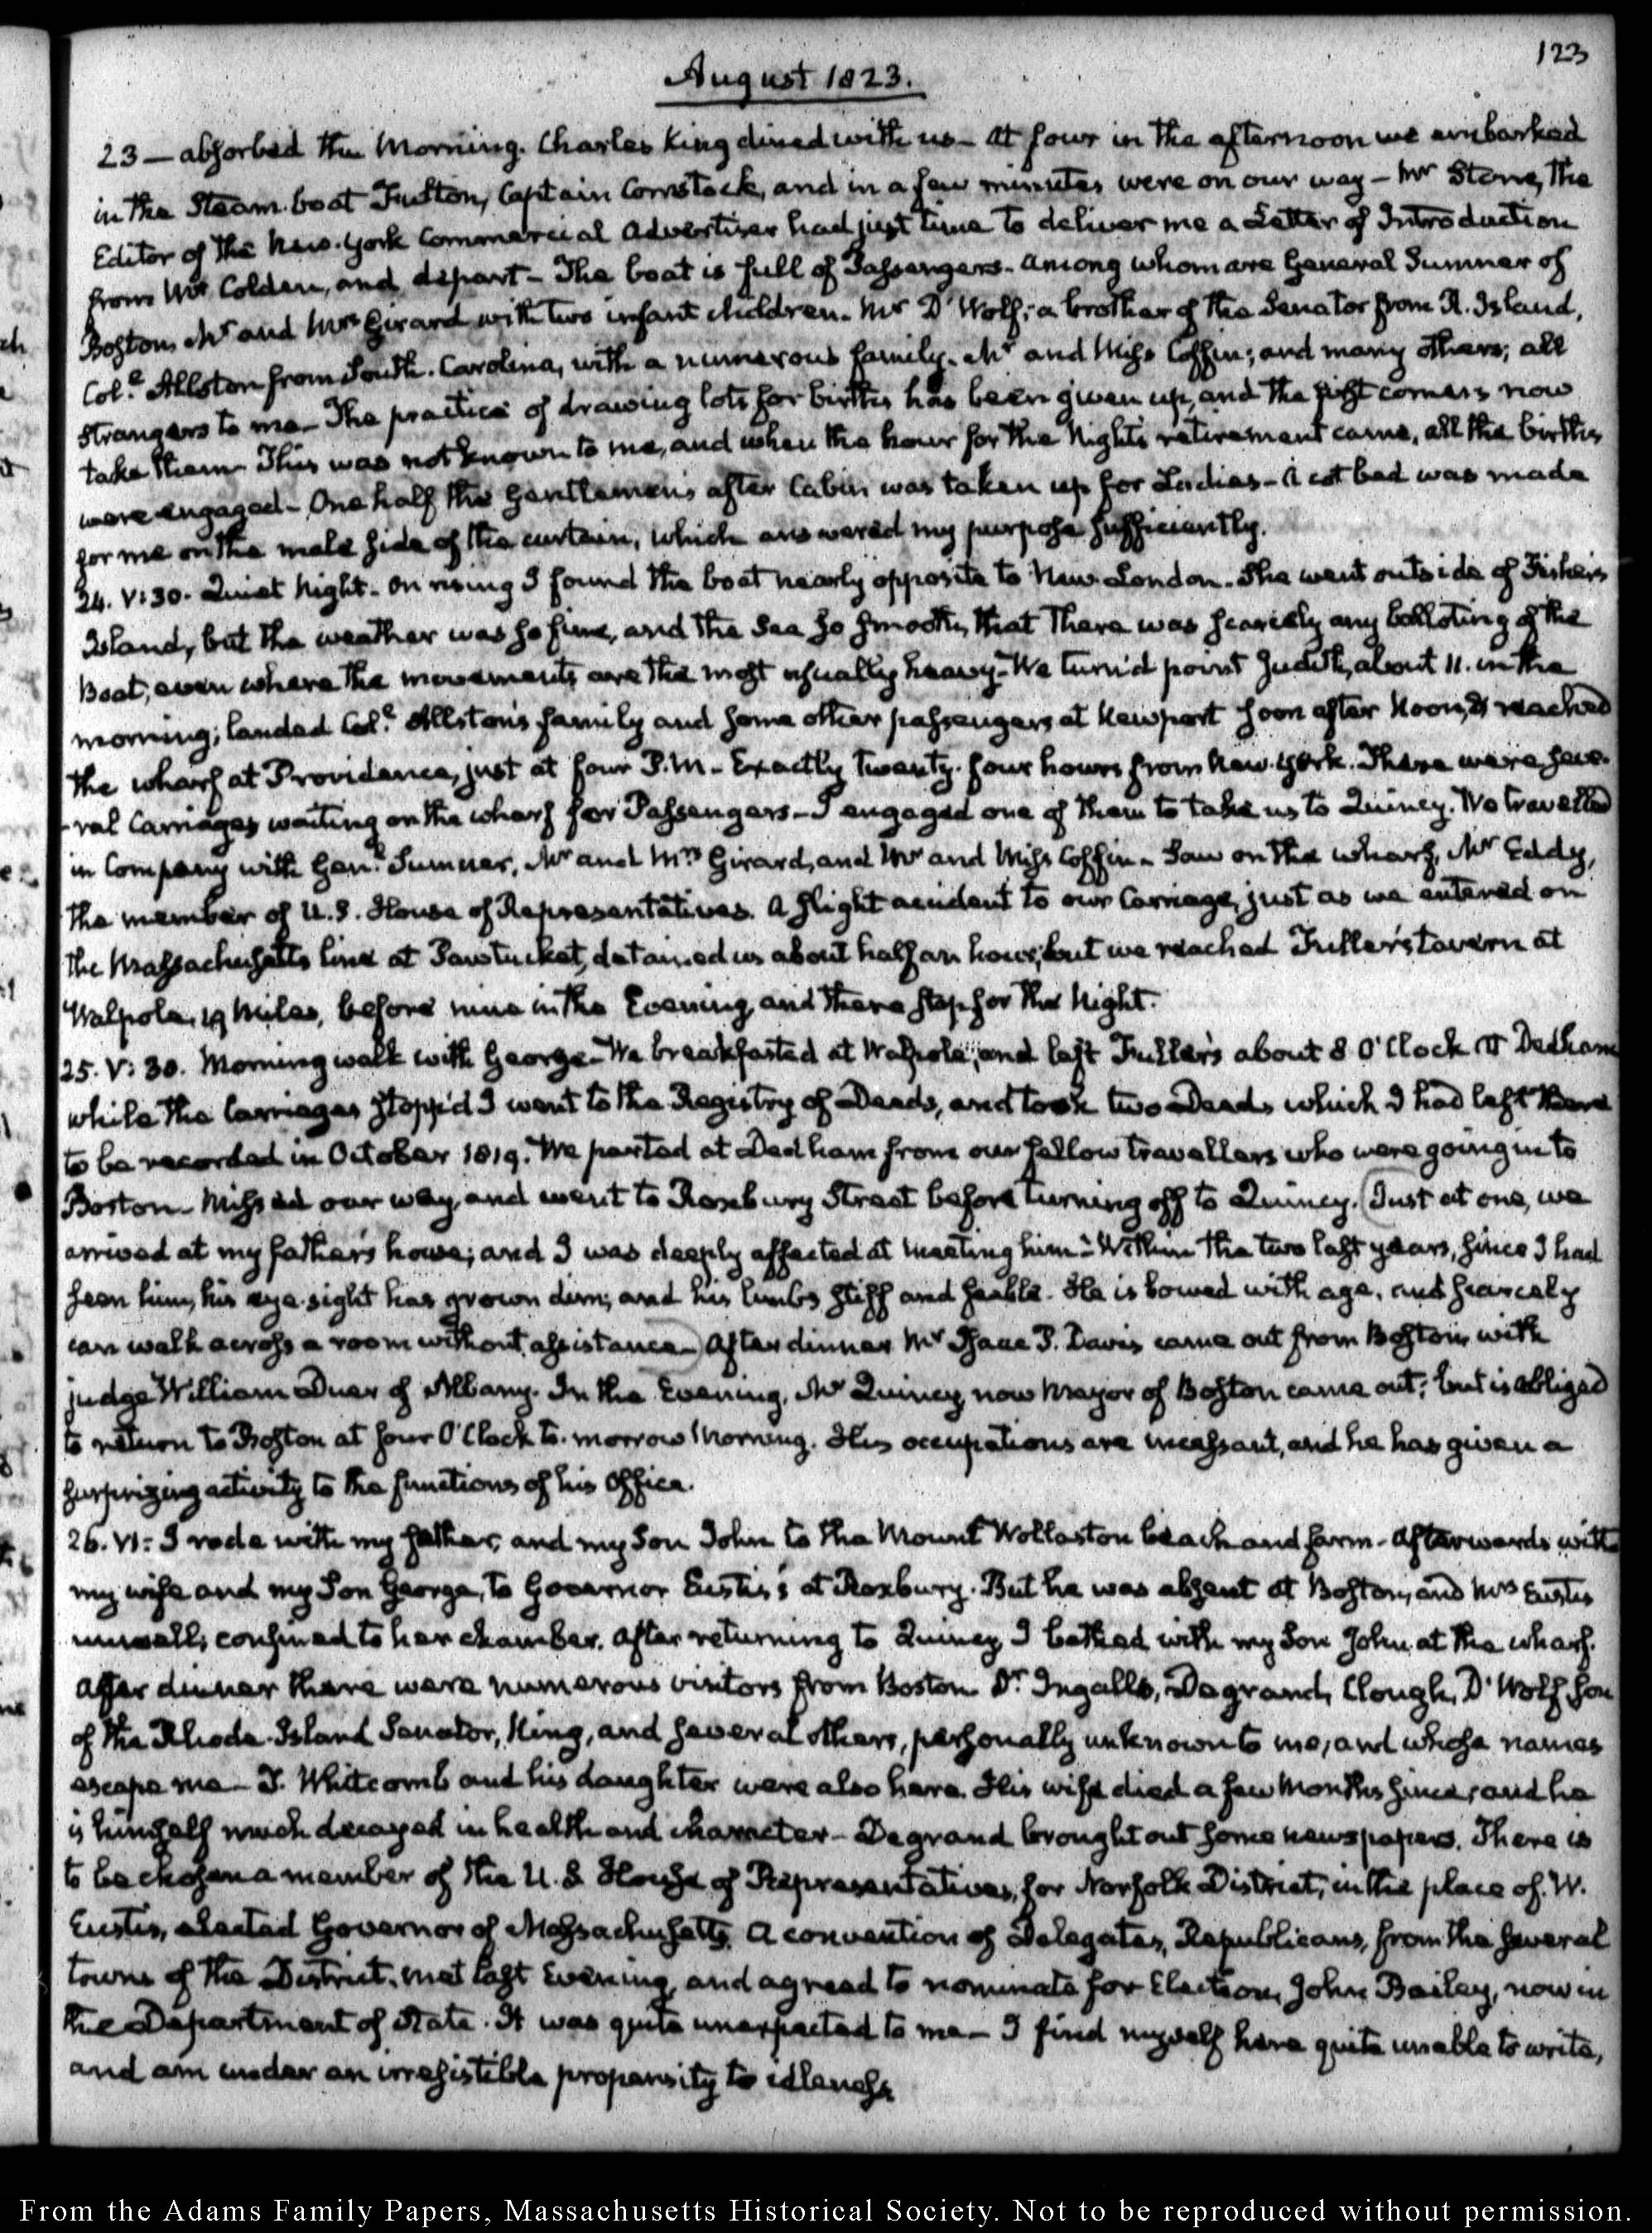 123
August 1823.
23 — absorbed the Morning. Charles King dined with us — At four in the afternoon we embarked
in the Steam-boat Fulton, Captain Comstock, and in a few minutes were on our way — Mr Stone, the
Editor of the New-York Commercial Advertiser had just time to deliver me a Letter of Introduction
from Mr Colden, and depart — The boat is full of Passengers — among whom are General Sumner of
Boston, Mr and Mrs Girard with two infant children. Mr D'Wolf, a brother of the Senator from R. Island,
Col.l Allston from South-Carolina, with a numerous family. Mr and Miss Coffin; and many others; all
strangers to me — The practice of drawing lots for births has been given up, and the first comers now
take them — This was not known to me, and when the hour for the Night's retirement came, all the births
were engaged — One half the Gentlemen's after Cabin was taken up for Ladies — A cot bed was made
for me on the male side of the curtain, which answered my purpose sufficiently.
24. V:30. Quiet Night. On rising I found the boat nearly opposite to New-London. She went outside of Fisher's
Island, but the weather was so fine, and the Sea so smooth, that there was scarcely any balloting of the
Boat, even where the movements are the most usually heavy — We turn'd point Judith, about 11. in the
morning; landed Col.l Allston's family and some other passengers at Newport soon after Noon, & reached
the wharf at Providence, just at four P.M. — Exactly twenty-four hours from New-York. There were seve-
-ral Carriages waiting on the wharf for Passengers — I engaged one of them to take us to Quincy. We travelled
in Company with Gen.l Sumner, Mr and Mrs Girard, and Mr and Miss Coffin — Saw on the wharf, Mr Eddy,
the member of U.S. House of Representatives. A slight accident to our Carriage, just as we entered on
the Massachusetts line at Pawtucket, detained us about half an hour, but we reached Fuller's tavern at
Walpole, 19 Miles, before nine in the Evening, and there stop for the Night.
25. V:30. Morning walk with George — We breakfasted at Walpole, and left Fuller's about 8 O'Clock At Dedham
while the Carriages stopp'd I went to the Registry of Deeds, and took two Deeds which I had left there
to be recorded in October 1819. We parted at Dedham from our fellow travellers who were going in to
Boston — Missed our way, and went to Roxbury Street before turning off to Quincy. (Just at one, we
arrived at my father's house; and I was deeply affected at meeting him — Within the two last years, since I had
seen him, his eye-sight has grown dim, and his limbs stiff and feeble. He is bowed with age, and scarcely
can walk across a room without assistance) After dinner Mr Isaac P. Davis came out from Boston with
judge William Duer of Albany. In the Evening, Mr Quincy, now Mayor of Boston came out; but is obliged
to return to Boston at four O'Clock to-morrow Morning. His occupations are incessant, and he has given a
surprizing activity to the functions of his office.
26. VI: I rode with my father, and my Son John to the Mount Wollaston beach and farm — Afterwards with
my wife and my Son George, to Governor Eustis's at Roxbury. But he was absent at Boston, and Mrs Eustis
unwell; confined to her chamber. After returning to Quincy I bathed with my Son John at the wharf.
After dinner there were numerous visitors from Boston Dr Ingalls, Degrand, Clough, D'Wolf son
of the Rhode-Island Senator, King, and several others, personally unknown to me, and whose names
escape me — T. Whitcomb and his daughter were also here. His wife died a few Months since, and he
is himself much decayed in health and character — Degrand brought out some newspapers. There is
to be chosen a member of the U.S. House of Representatives, for Norfolk District, in the place of W.
Eustis, elected Governor of Massachusetts. A convention of Delegates, Republicans, from the several
towns of the District, met last Evening, and agreed to nominate for Election, John Bailey, now in
the Department of State. It was quite unexpected to me — I find myself here quite unable to write,
and am under an irresistible propensity to idleness
From the Adams Family Papers, Massachusetts Historical Society. Not to be reproduced without permission.